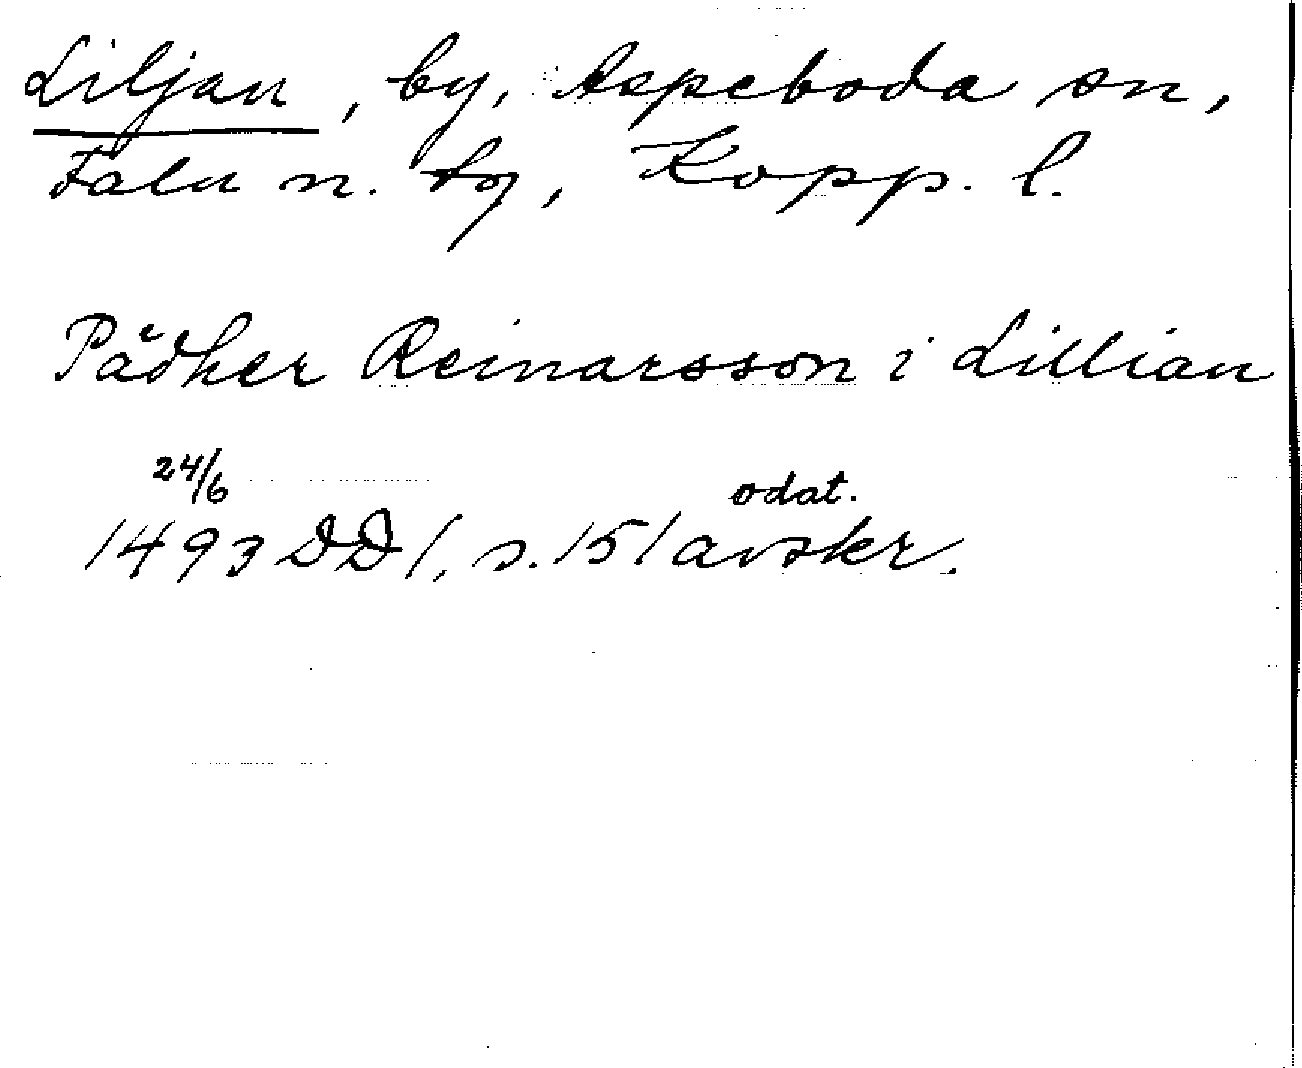 Liljan, by, Aspeboda sn,
Falu n. tg, Kopp. l.
Pädher Reinarsson i Lillian
24/6
1493 DD 1, s. 151 odat. avskr.